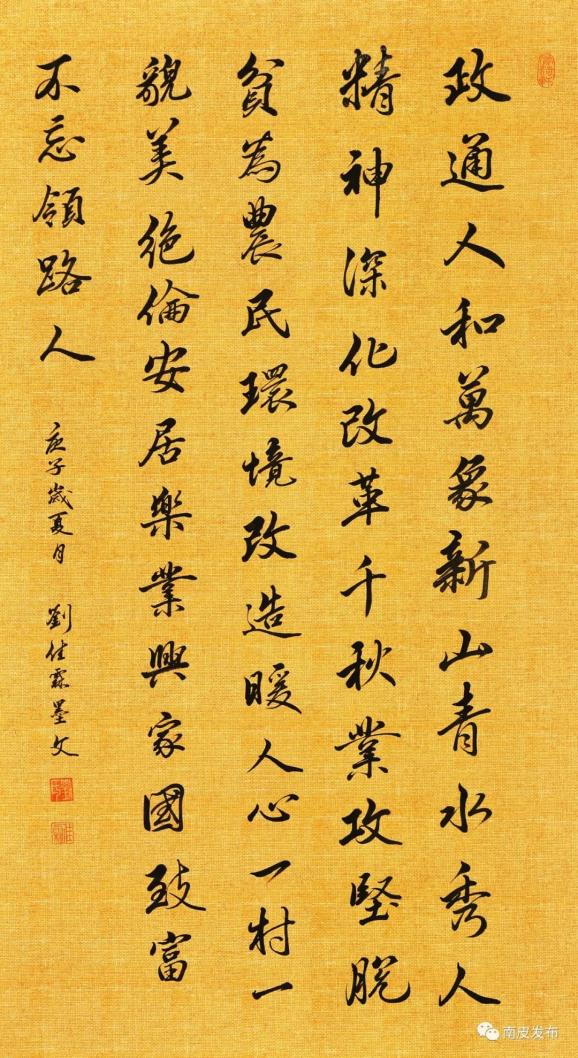 政通人和萬象新山青水秀人
精神深化改革千秋業攻堅脱
貧為農民環境改造暖人心一村一
貌美絶倫安居樂業興家國致富
不忘領路人
庚子歲夏月 劉佳霖墨文
南皮发布